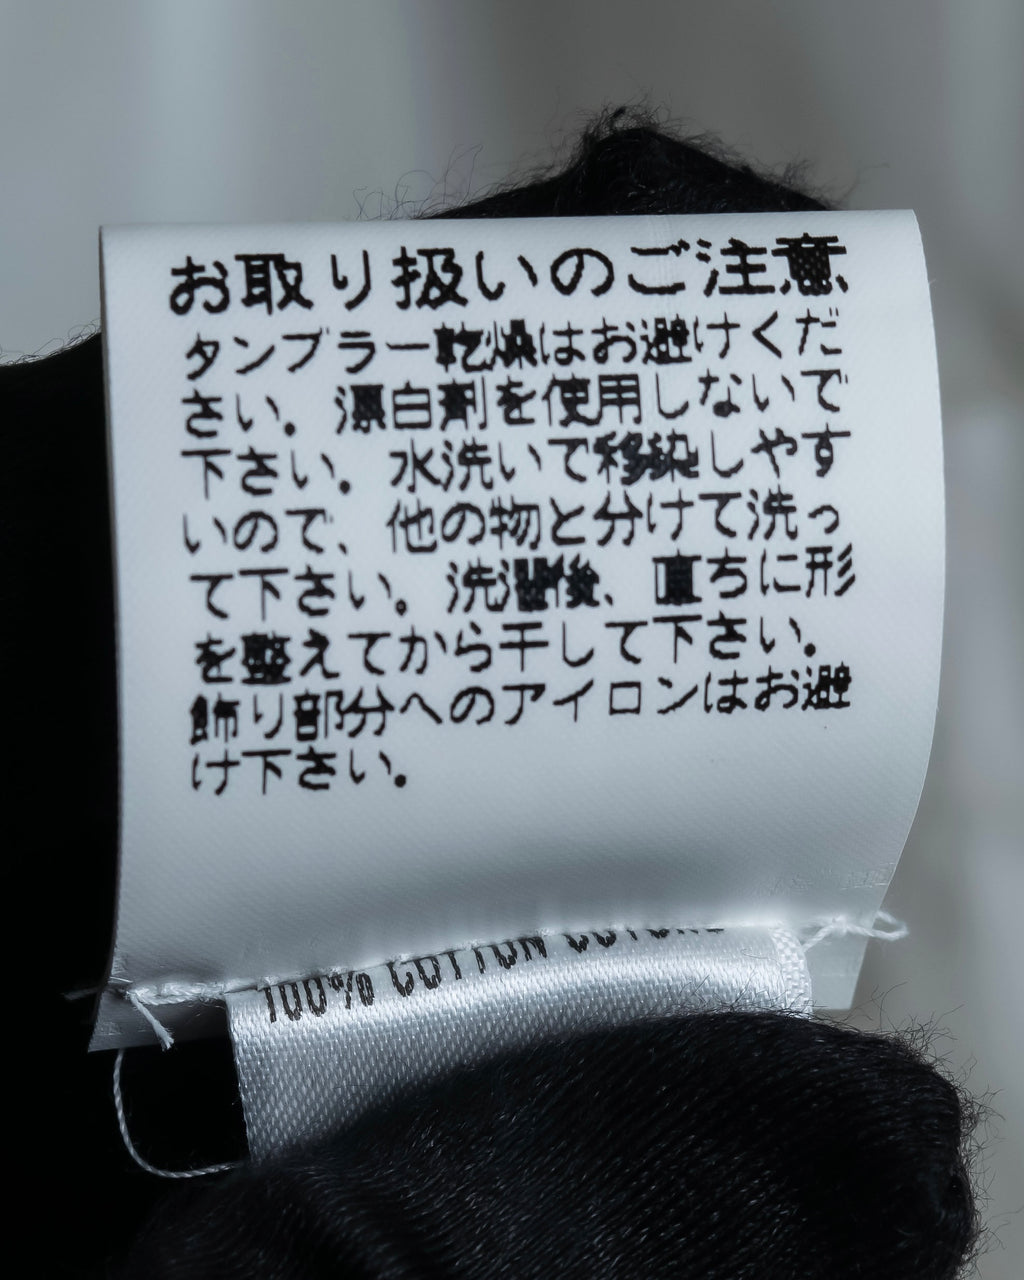 お取り扱いのご注意
タンブラー乾燥はお避けくだ
さい。漂白剤を使用しないで
下さい。水洗いで移染しやす
いので、他の物と分けて洗っ
て下さい。洗濯後、直ちに形
を整えてから干して下さい。
飾り部分へのアイロンはお避
け下さい。
100% COTTON